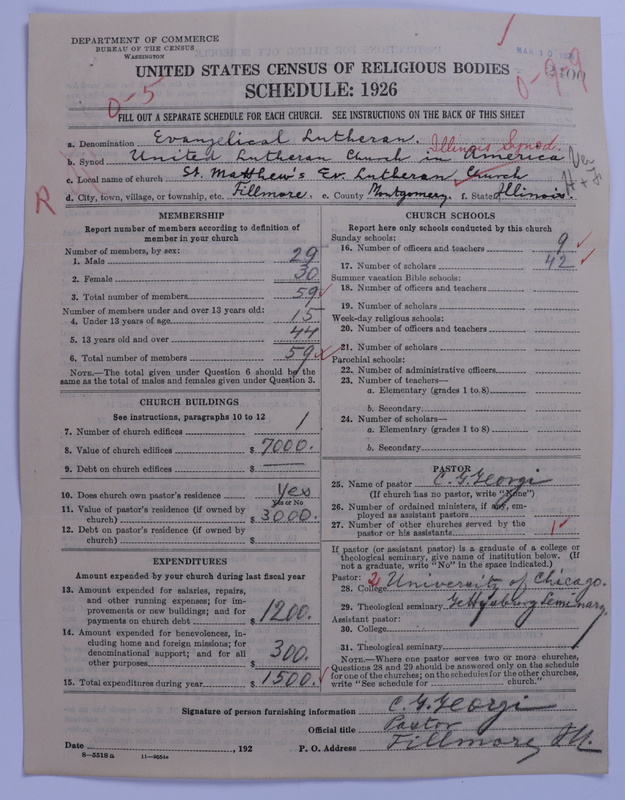 DEPARTMENT OF COMMERCE
BUREAU OF THE CENSUS
WASHINGTON
MAR 10
UNITED STATES CENSUS OF RELIGIOUS BODIES
SCHEDULE: 1926
0-5
0-9-9
FILL OUT A SEPARATE SCHEDULE FOR EACH CHURCH. SEE INSTRUCTIONS ON THE BACK OF THIS SHEET
a. Denomination Evangelical Lutheran. Illinois Synod.
b. Synod United Lutheran Church in America
c. Local name of church St. Matthew's Ev. Lutheran Church
d. City, town, village, or township, etc. Fillmore. e. County Montgomery. f. State Illinois.
R
MEMBERSHIP
Report number of members according to definition of member in your church
Number of members, by sex:
1. Male 29
2. Female 30
3. Total number of members 59
Number of members under and over 13 years old:
4. Under 13 years of age 15
5. 13 years old and over 44
6. Total number of members 59
NOTE.—The total given under Question 6 should be the same as the total of males and females given under Question 3.
CHURCH BUILDINGS
See instructions, paragraphs 10 to 12
7. Number of church edifices 1
8. Value of church edifices $ 7000.
9. Debt on church edifices $ —
10. Does church own pastor's residence Yes
Yes or No
11. Value of pastor's residence (if owned by church) $ 3000.
12. Debt on pastor's residence (if owned by church) $
EXPENDITURES
Amount expended by your church during last fiscal year
13. Amount expended for salaries, repairs, and other running expenses; for improvements or new buildings; and for payments on church debt $ 1200.
14. Amount expended for benevolences, including home and foreign missions; for denominational support; and for all other purposes $ 300.
15. Total expenditures during year $ 1500.
CHURCH SCHOOLS
Report here only schools conducted by this church
Sunday schools:
16. Number of officers and teachers 9
17. Number of scholars 42
Summer vacation Bible schools:
18. Number of officers and teachers
19. Number of scholars
Week-day religious schools:
20. Number of officers and teachers
21. Number of scholars
Parochial schools:
22. Number of administrative officers
23. Number of teachers—
a. Elementary (grades 1 to 8)
b. Secondary
24. Number of scholars—
a. Elementary (grades 1 to 8)
b. Secondary
PASTOR
25. Name of pastor C. G. Georgi
(If church has no pastor, write "None")
26. Number of ordained ministers, if any, employed as assistant pastors
27. Number of other churches served by the pastor or his assistants 1
If pastor (or assistant pastor) is a graduate of a college or theological seminary, give name of institution below. (If not a graduate, write "No" in the space indicated.)
Pastor: 2
28. College University of Chicago.
29. Theological seminary Gettysburg Seminary.
Assistant pastor:
30. College
31. Theological seminary
NOTE.—Where one pastor serves two or more churches, Questions 28 and 29 should be answered only on the schedule for one of the churches; on the schedules for the other churches, write "See schedule for church."
Signature of person furnishing information C. G. Georgi
Official title Pastor
Date , 192 P. O. Address Fillmore Ill.
8—5518a